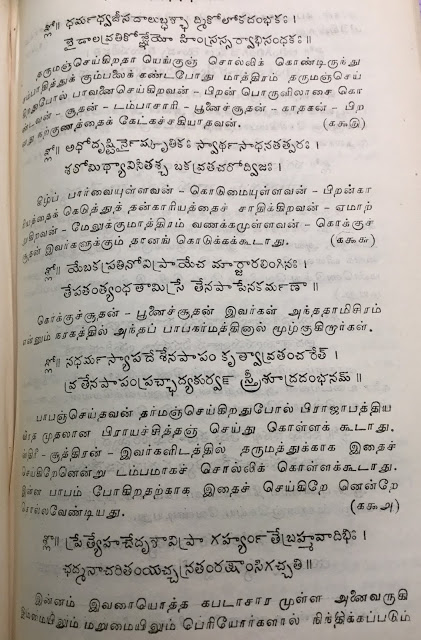 శ్లో॥ ధర్మధ్వజీసదాలుబ్ధశ్ఛాద్మికోలోకదంభకః ।
బైడాలవ్రతికోజ్ఞేయో హింస్రస్సర్వాభిసంధకః॥
தருமஞ்செய்கிறதா யெங்குஞ் சொல்லிக் கொண்டிருந்து
கும்பலைக் கண்டபோது மாத்திரம் தருமஞ்செய்
கிறதுபோல் பாவனைசெய்கிறவன் - பிறன் பொருளிலாசை கொ
ண்டவன் - சூதன் - டம்பாசாரி - பூனைச்சூதன் - காதகன் - பிற
நற்குணத்தைக் கேட்கச்சகியாதவன். (௧௯௫)
శ్లో॥ అధోదృష్టిర్నైష్కృతికః స్వార్థసాధనతత్పరః ।
శఠోమిథ్యావినీతశ్చ బకవ్రతచరోద్విజః।
கீழ்ப் பார்வையுள்ளவன் - கொடுமையுள்ளவன் - பிறன்கா
ரியத்தைக் கெடுத்துத் தன்காரியத்தைச் சாதிக்கிறவன் - ஏமாற்
றுகிறவன் - மேலுக்குமாத்திரம் வணக்கமுள்ளவன் - கொக்குச்
சூதன் இவர்களுக்கும் தானங் கொடுக்கக்கூடாது. (௧௯௬)
శ్లో॥ యేబకవ్రతినోవిప్రాయేచ మార్జారలింగినః।
తేపతంత్యంధతామిస్రే తేనపాపేనకర్మణా ॥
கொக்குச்சூதன் - பூனைச்சூதன் இவர்கள் அந்ததாமிசிரம்
என்னும் நரகத்தில் அந்தப் பாபகர்மத்தினால் மூழ்குகிறார்கள்.
శ్లో॥ నధర్మస్యాపదేశేనపాపం కృత్వావ్రతంచరేత్ ।
వ్రతేనపాపంప్రచ్ఛాద్యకుర్వన్ స్త్రీశూద్రదంభనమ్॥
பாபஞ்செய்தவன் தர்மஞ்செய்கிறதுபோல் பிராஜாபத்திய
முதலான பிராயச்சித்தஞ் செய்து கொள்ளக் கூடாது.
ஸ்திரி - சூத்திரன் - இவர்களிடத்தில் தருமத்துக்காக இதைச்
செய்கிறேனென்று டம்பமாகச் சொல்லிக் கொள்ளக்கூடாது.
இன்ன பாபம் போகிறதற்காக இதைச் செய்கிறே னென்றே
சொல்லவேண்டியது. (௧௯௮)
శ్లో॥ ప్రేత్యేహచేదృశావిప్రా గర్హ్యంతేబ్రహ్మవాదిభిః।
ఛద్మనాచరితంయచ్చవ్రతంరక్షాంసిగచ్ఛతి॥
இன்னம் இவரையொத்த கபடாசார முள்ள அனைவருகி
இம்மையிலும் மறுமையிலும் பெரியோர்களால் நிந்திக்கப்படும்